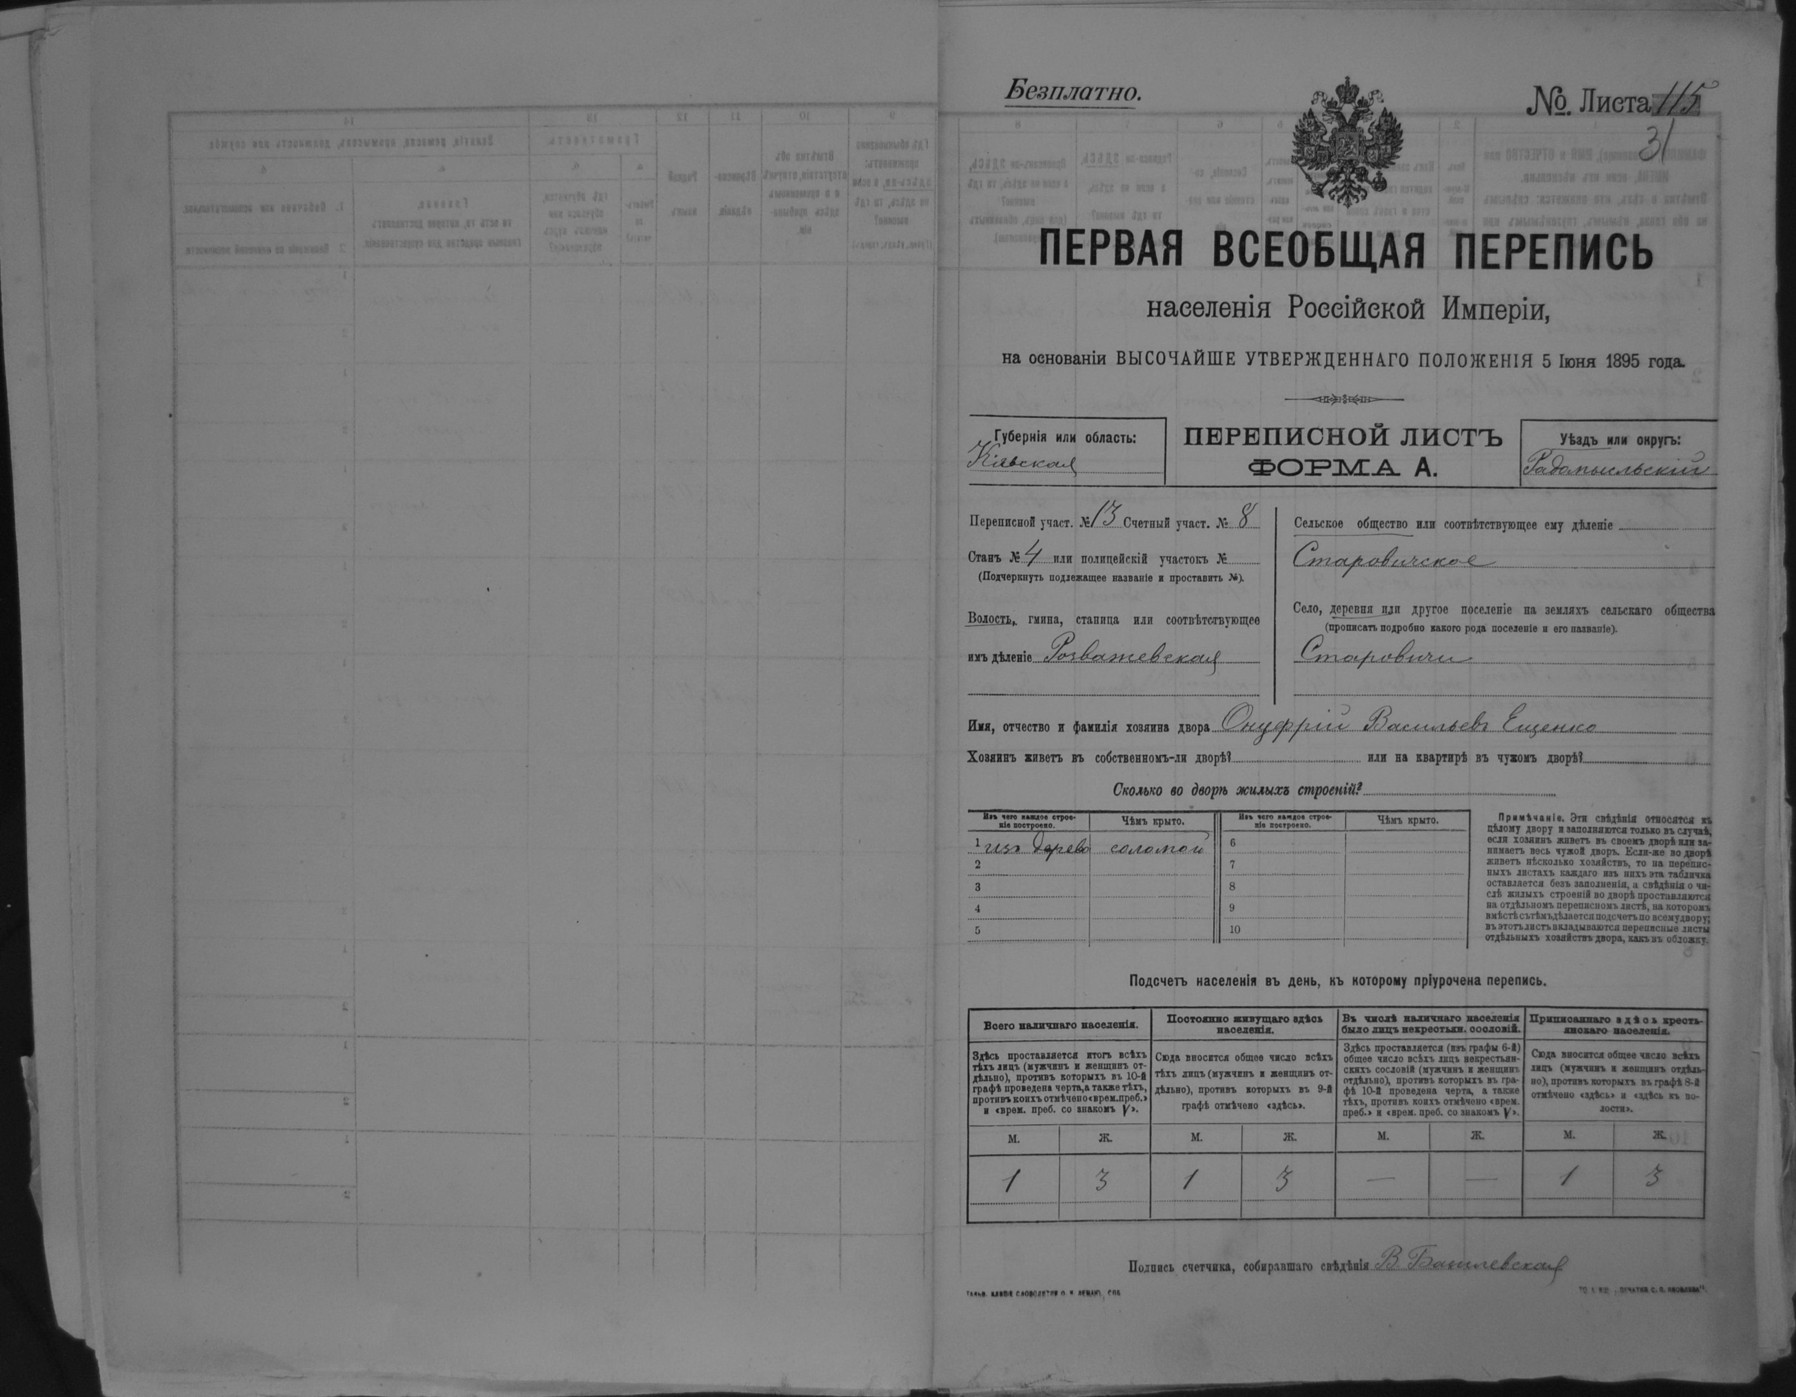 Безплатно.
№ Листа 115
31
ПЕРВАЯ ВСЕОБЩАЯ ПЕРЕПИСЬ
населенія Россійской Имперіи,
на основаніи ВЫСОЧАЙШЕ УТВЕРЖДЕННАГО ПОЛОЖЕНІЯ 5 Іюня 1895 года.
Губернія или область:
Кіевская
ПЕРЕПИСНОЙ ЛИСТЪ
ФОРМА А.
Уѣздъ или округъ:
Радомысльскій
Переписной участ. № 13 Счетный участ. № 8
Станъ № 4 или полицейскій участокъ №
(Подчеркнуть подлежащее названіе и проставить №).
Волость, гмина, станица или соотвѣтствующее
имъ дѣленіе Розважевская
Сельское общество или соотвѣтствующее ему дѣленіе
Старовичское
Село, деревня или другое поселеніе на земляхъ сельскаго общества
(прописать подробно какого рода поселеніе и его названіе).
Старовичи
Имя, отчество и фамилія хозяина двора Онуфрій Васильевъ Ещенко
Хозяинъ живетъ въ собственномъ-ли дворѣ? или на квартирѣ въ чужомъ дворѣ?
Сколько во дворѣ жилыхъ строеній?
Изъ чего каждое строе-
ніе построено.
Чѣмъ крыто.
Изъ чего каждое строе-
ніе построено.
Чѣмъ крыто.
1 изъ дерева соломой 6
2 7
3 8
4 9
5 10
Примѣчаніе. Эти свѣдѣнія относятся къ
цѣлому двору и заполняются только въ случаѣ,
если хозяинъ живетъ въ своемъ дворѣ или за-
нимаетъ весь чужой дворъ. Если-же во дворѣ
живетъ нѣсколько хозяйствъ, то на перепис-
ныхъ листахъ каждаго изъ нихъ эта табличка
оставляется безъ заполненія, а свѣдѣнія о чи-
слѣ жилыхъ строеній во дворѣ проставляются
на отдѣльномъ переписномъ листѣ, на которомъ
вмѣстѣ съ тѣмъ дѣлается подсчетъ по всему двору;
въ этотъ листъ вкладываются переписные листы
отдѣльныхъ хозяйствъ двора, какъ въ обложку.
Подсчетъ населенія въ день, къ которому пріурочена перепись.
Всего наличнаго населенія.
Здѣсь проставляется итогъ всѣхъ
тѣхъ лицъ (мужчинъ и женщинъ от-
дѣльно), противъ которыхъ въ 10-й
графѣ проведена черта, а также тѣхъ,
противъ коихъ отмѣчено «врем. преб.»
и «врем. преб. со знакомъ V».
Постоянно живущаго здѣсь
населенія.
Сюда вносится общее число всѣхъ
тѣхъ лицъ (мужчинъ и женщинъ от-
дѣльно), противъ которыхъ въ 9-й
графѣ отмѣчено «здѣсь».
Въ числѣ наличнаго населенія
было лицъ некрестьян. сословій.
Здѣсь проставляется (изъ графы 6-й)
общее число всѣхъ лицъ некрестьян-
скихъ сословій (мужчинъ и женщинъ
отдѣльно), противъ которыхъ въ гра-
фѣ 10-й проведена черта, а также
тѣхъ, противъ коихъ отмѣчено «врем.
преб.» и «врем. преб. со знакомъ V».
Приписаннаго здѣсь кресть-
янскаго населенія.
Сюда вносится общее число всѣхъ
лицъ (мужчинъ и женщинъ отдѣль-
но), противъ которыхъ въ графѣ 8-й
отмѣчено «здѣсь» и «здѣсь къ во-
лости».
М. Ж. М. Ж. М. Ж. М. Ж.
1 3 1 3 — — 1 3
Подпись счетчика, собиравшаго свѣдѣнія В.